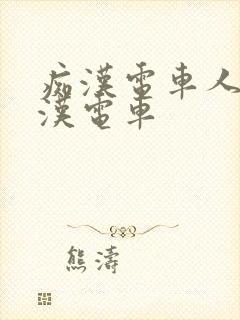 痴漢電車人
漢電車
熊濤